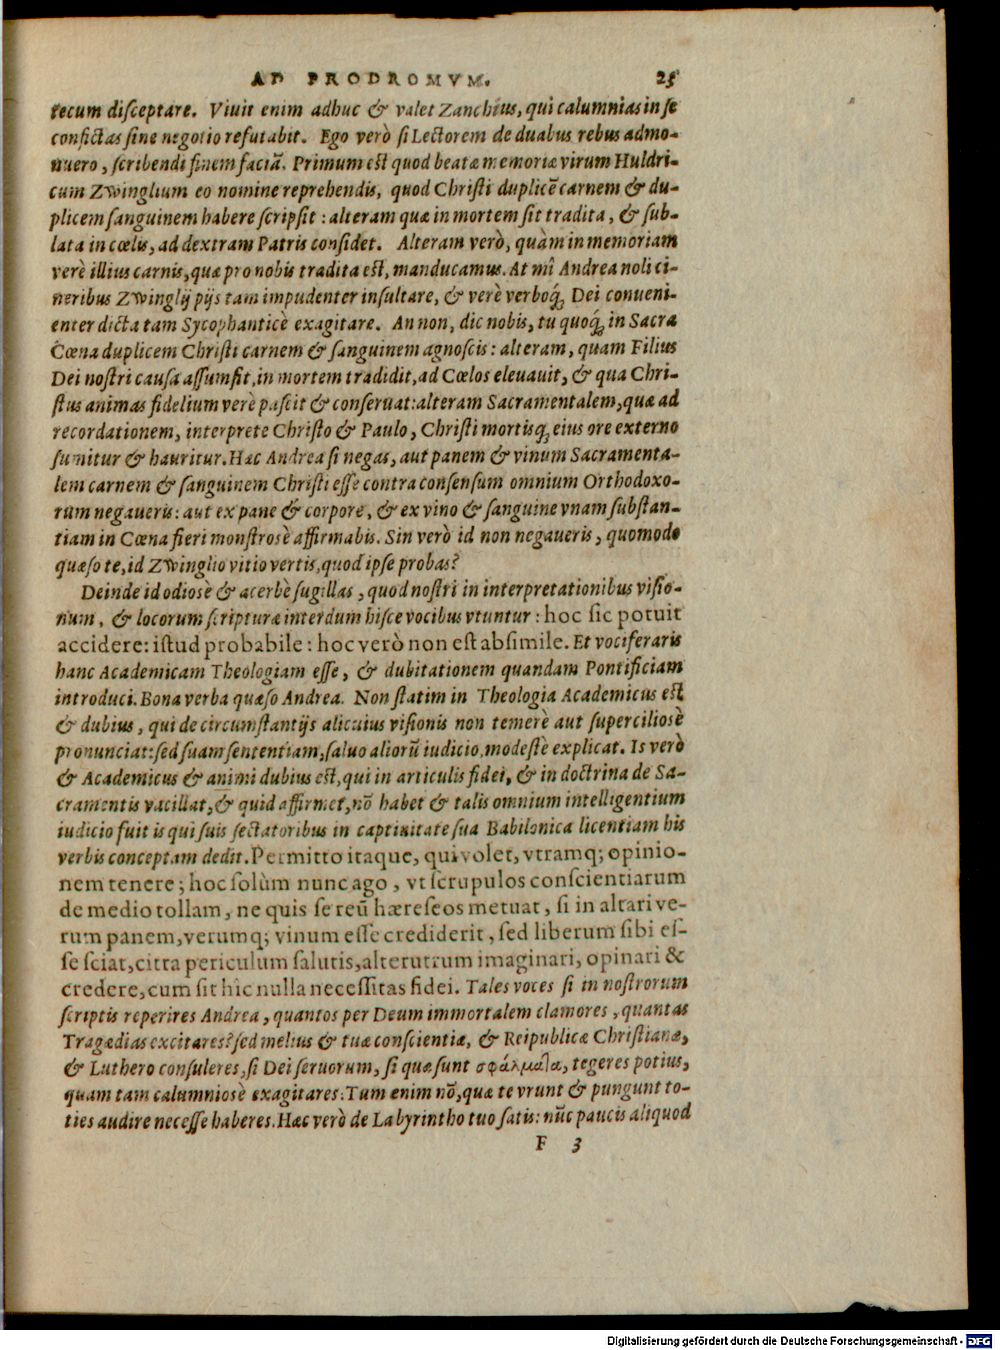 AD PRODROMVM. 25
tecum disceptare. Viuit enim adhuc & valet Zanchius, qui calumnias in se
confictas sine negotio refutabit. Ego verò si Lectorem de duabus rebus admo-
nuero, scribendi finem faciã. Primum est quod beatæ memoriæ virum Huldri-
cum Zwinglium eo nomine reprehendis, quod Christi duplicẽ carnem & du-
plicem sanguinem habere scripsit: alteram quæ in mortem sit tradita, & sub-
lata in cœlis, ad dextram Patris considet. Alteram verò, quàm in memoriam
verè illius carnis, quæ pro nobis tradita est, manducamus. At mî Andrea noli ci-
neribus Zwinglij pijs tam impudenter insultare, & verè verboq́; Dei conueni-
enter dicta tam Sycophanticè exagitare. An non, dic nobis, tu quoq́; in Sacra
Cœna duplicem Christi carnem & sanguinem agnoscis: alteram, quam Filius
Dei nostri causa assumsit, in mortem tradidit, ad Cœlos eleuauit, & qua Chri-
stus animas fidelium verè pascit & conseruat: alteram Sacramentalem, quæ ad
recordationem, interprete Christo & Paulo, Christi mortisq; eius ore externo
sumitur & hauritur. Hæc Andrea si negas, aut panem & vinum Sacramenta-
lem carnem & sanguinem Christi esse contra consensum omnium Orthodoxo-
rum negaueris: aut ex pane & corpore, & ex vino & sanguine vnam substan-
tiam in Cœna fieri monstrosè affirmabis. Sin verò id non negaueris, quomodo
quæso te, id Zwinglio vitio vertis, quod ipse probas?
Deinde id odiosè & acerbè sugillas, quod nostri in interpretationibus visio-
num, & locorum scripturæ interdum hisce vocibus vtuntur: hoc sic potuit
accidere: istud probabile: hoc verò non est absimile. Et vociferaris
hanc Academicam Theologiam esse, & dubitationem quandam Pontificiam
introduci. Bona verba quæso Andrea. Non statim in Theologia Academicus est
& dubius, qui de circumstantijs alicuius visionis non temerè aut superciliosè
pronunciat: sed suam sententiam, saluo aliorũ iudicio, modestè explicat. Is verò
& Academicus & animi dubius est, qui in articulis fidei, & in doctrina de Sa-
cramentis vacillat, & quid affirmet, nõ habet & talis omnium intelligentium
iudicio fuit is qui suis sectatoribus in captiuitate sua Babilonica licentiam his
verbis conceptam dedit. Permitto itaque, qui volet, vtramq; opinio-
nem tenere; hoc solùm nunc ago, vt scrupulos conscientiarum
de medio tollam, ne quis se reũ hæreseos metuat, si in altari ve-
rum panem, verumq; vinum esse crediderit, sed liberum sibi es-
se sciat, citra periculum salutis, alterutrum imaginari, opinari &
credere, cum sit hic nulla necessitas fidei. Tales voces si in nostrorum
scriptis reperires Andrea, quantos per Deum immortalem clamores, quantas
Tragædias excitares? sed melius & tuæ conscientiæ, & Reipublicæ Christianæ,
& Luthero consuleres, si Dei seruorum, si quæ sunt σφάλματα, tegeres potius,
quam tam calumniosè exagitares. Tum enim nõ, quæ te vrunt & pungunt to-
ties audire necesse haberes. Hæc verò de Labyrintho tuo satis: nũc paucis aliquod
F 3
Digitalisierung gefördert durch die Deutsche Forschungsgemeinschaft - DFG